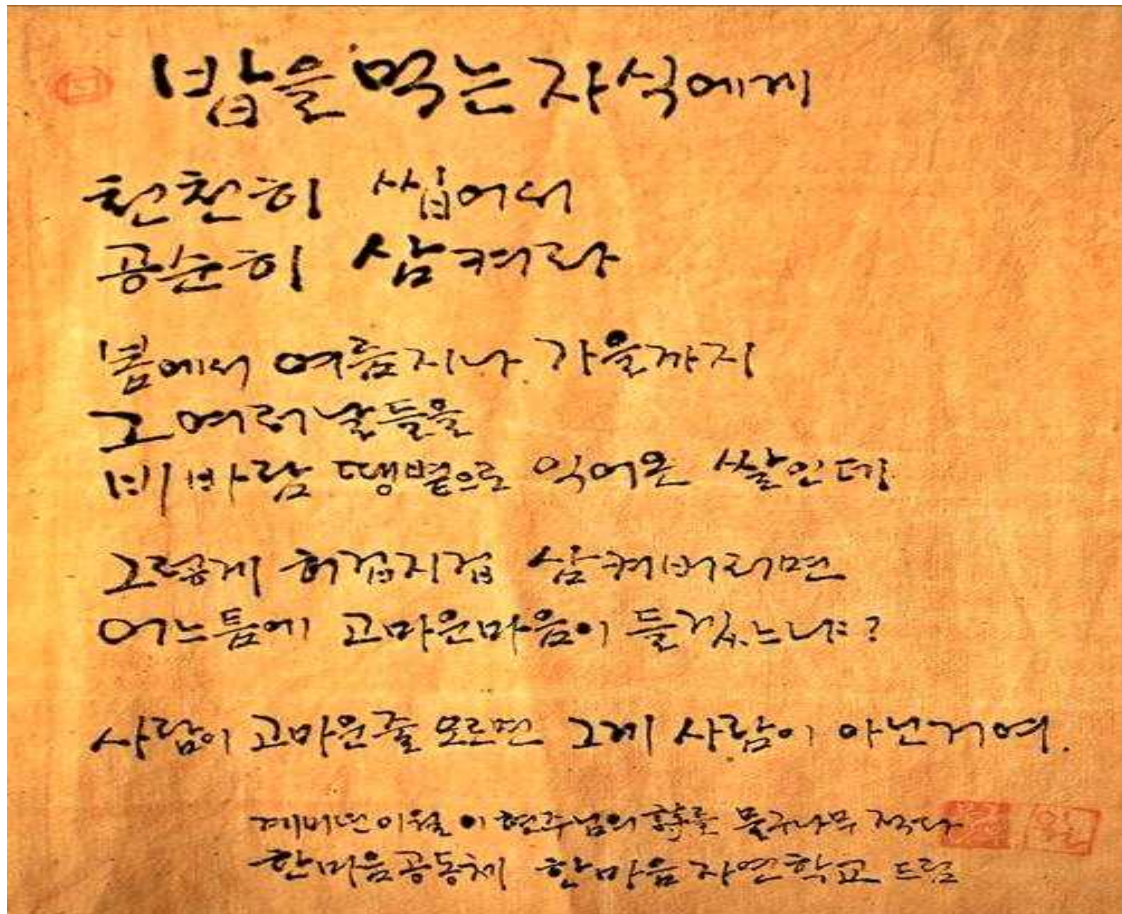 밥을 먹는 자식에게
천천히 씹어서
공순히 삼켜라
봄에서 여름지나 가을까지
그 여러 날들을
비바람 땡볕으로 익어온 쌀인데
그렇게 허겁지겁 삼켜버리면
어느틈에 고마운마음이 들겠느냐?
사람이 고마운줄 모르면 그게 사람이 아닌거여.
계미년 이월 이현주님의 詩를 물푸나무 적다
한마음공동체 한마음자연학교 드림